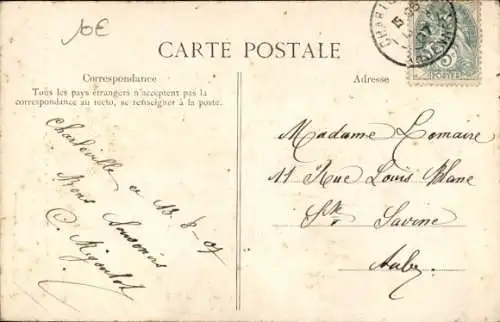 6E
CARTE POSTALE
Correspondance
Tous les pays étrangers n'acceptent pas la
correspondance au recto, se renseigner à la poste.
Adresse
Charleville le 13-8-07
Bons Souvenirs
C.
Madame Lemaire
11 Rue Louis Blanc
Ste Savine
Aube
POSTES